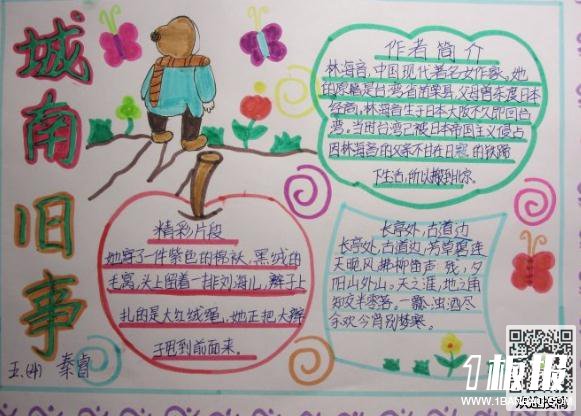 城南旧事
作者简介
林海音,中国现代著名女作家。她
的原籍是台湾省苗栗县,父母曾东渡日本
经商,林海音生于日本大阪不久即回台
湾。当时台湾已被日本帝国主义侵占
因林海音的父亲不甘在日寇的铁蹄
下生活,所以搬到北京。
精彩片段
她穿了一件紫色的棉袄,黑绒的
毛窝,头上留着一排刘海儿,辫子上
扎的是大红绒绳,她正把大辫
子甩到前面来。
长亭外,古道边
长亭外,古道边,芳草碧连
天晚风拂柳笛声残,夕
阳山外山。天之涯,地之角
知交半零落。一瓢浊酒尽
余欢今宵别梦寒。
五.(4) 秦睿
1板报
WWW.1BANBAO.COM